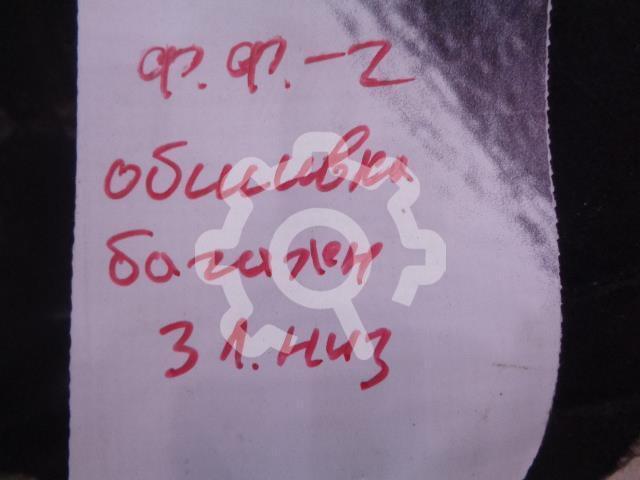 ф.ф.-2
обшивка
багажн
З л.низ